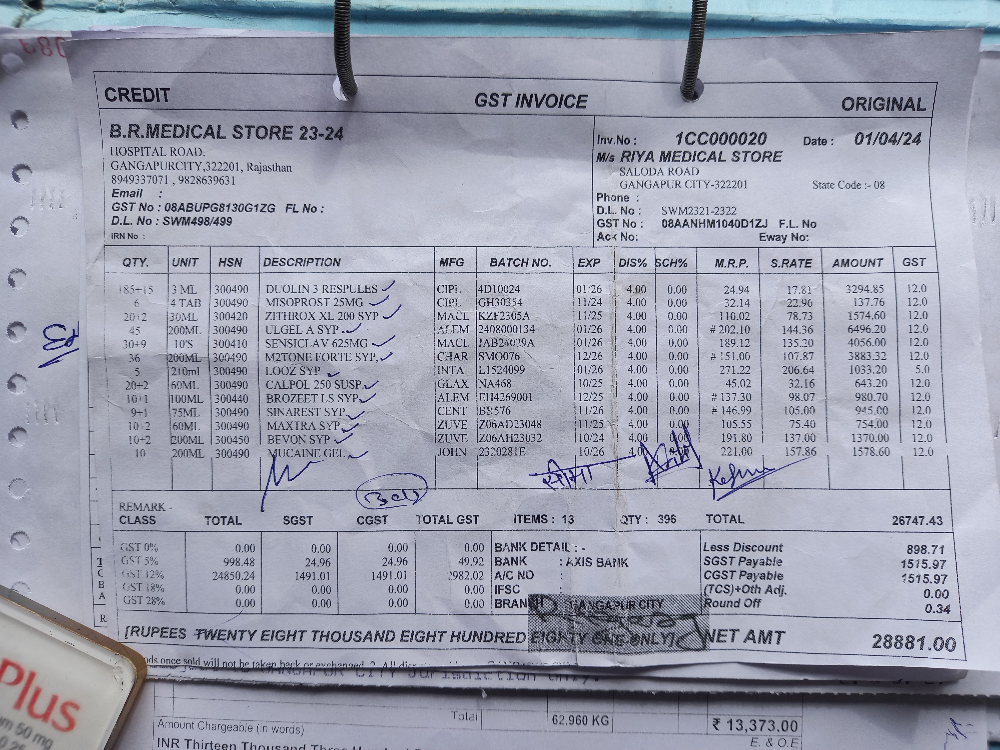 CREDIT
GST INVOICE
ORIGINAL
B.R.MEDICAL STORE 23-24
HOSPITAL ROAD.
GANGAPURCITY,322201, Rajasthan
8949337071 , 9828639631
Email :
GST No : 08ABUPG8130G1ZG FL No :
D.L. No : SWM498/499
IRN No :
Inv.No : 1CC000020 Date : 01/04/24
M/s RIYA MEDICAL STORE
SALODA ROAD
GANGAPUR CITY-322201 State Code :- 08
Phone :
D.L. No : SWM2321-2322
GST No : 08AANHM1040D1ZJ F.L. No
Ack No: Eway No:
QTY. UNIT HSN DESCRIPTION MFG BATCH NO. EXP DIS% SCH% M.R.P. S.RATE AMOUNT GST
185+15 3 ML 300490 DUOLIN 3 RESPULES CIPL 4D10024 01/26 4.00 0.00 24.94 17.81 3294.85 12.0
6 4 TAB 300490 MISOPROST 25MG CIPL GH30354 11/24 4.00 0.00 32.14 22.96 137.76 12.0
20+2 30ML 300420 ZITHROX XL 200 SYP MACL KZF2305A 11/25 4.00 0.00 110.02 78.73 1574.60 12.0
45 200ML 300490 ULGEL A SYP. ALEM 2408000134 01/26 4.00 0.00 # 202.10 144.36 6496.20 12.0
30+9 10'S 300410 SENSICLAV 625MG MACL 01/26 4.00 0.00 189.12 135.20 4056.00 12.0
36 200ML 300490 M2TONE FORTE SYP. CHAR SMO076 12/26 4.00 0.00 # 151.00 107.87 3883.32 12.0
5 210ml 300490 LOOZ SYP INTA L1524099 01/26 4.00 0.00 271.22 206.64 1033.20 5.0
20+2 60ML 300490 CALPOL 250 SUSP. GLAX NA468 10/25 4.00 0.00 45.02 32.16 643.20 12.0
10+1 100ML 300440 BROZEET LS SYP ALEM EH4269001 12/25 4.00 0.00 # 137.30 98.07 980.70 12.0
9+1 75ML 300490 SINAREST SYP CENT BS576 11/26 4.00 0.00 # 146.99 105.00 945.00 12.0
10+2 60ML 300490 MAXTRA SYP ZUVE Z06AD23048 11/25 4.00 0.00 105.55 75.40 754.00 12.0
10+2 200ML 300450 BEVON SYP ZUVE Z06AH23032 10/24 4.00 0.00 191.80 137.00 1370.00 12.0
10 200ML 300490 MUCAINE GEL JOHN 2320281E 10/26 221.00 157.86 1578.60 12.0
REMARK -
CLASS TOTAL SGST CGST TOTAL GST ITEMS : 13 QTY : 396 TOTAL 26747.43
GST 0% 0.00 0.00 0.00 0.00 BANK DETAIL : - Less Discount 898.71
GST 5% 998.48 24.96 24.96 49.92 BANK : AXIS BANK SGST Payable 1515.97
GST 12% 24850.24 1491.01 1491.01 2982.02 A/C NO : CGST Payable 1515.97
GST 18% 0.00 0.00 0.00 0.00 IFSC (TCS)+Oth Adj. 0.00
GST 28% 0.00 0.00 0.00 0.00 GANGAPUR CITY Round Off 0.34
[RUPEES TWENTY EIGHT THOUSAND EIGHT HUNDRED EIGHTY ONE ONLY] NET AMT 28881.00
Total 62.960 KG ₹ 13,373.00
Amount Chargeable (in words) E. & O.E
Plus